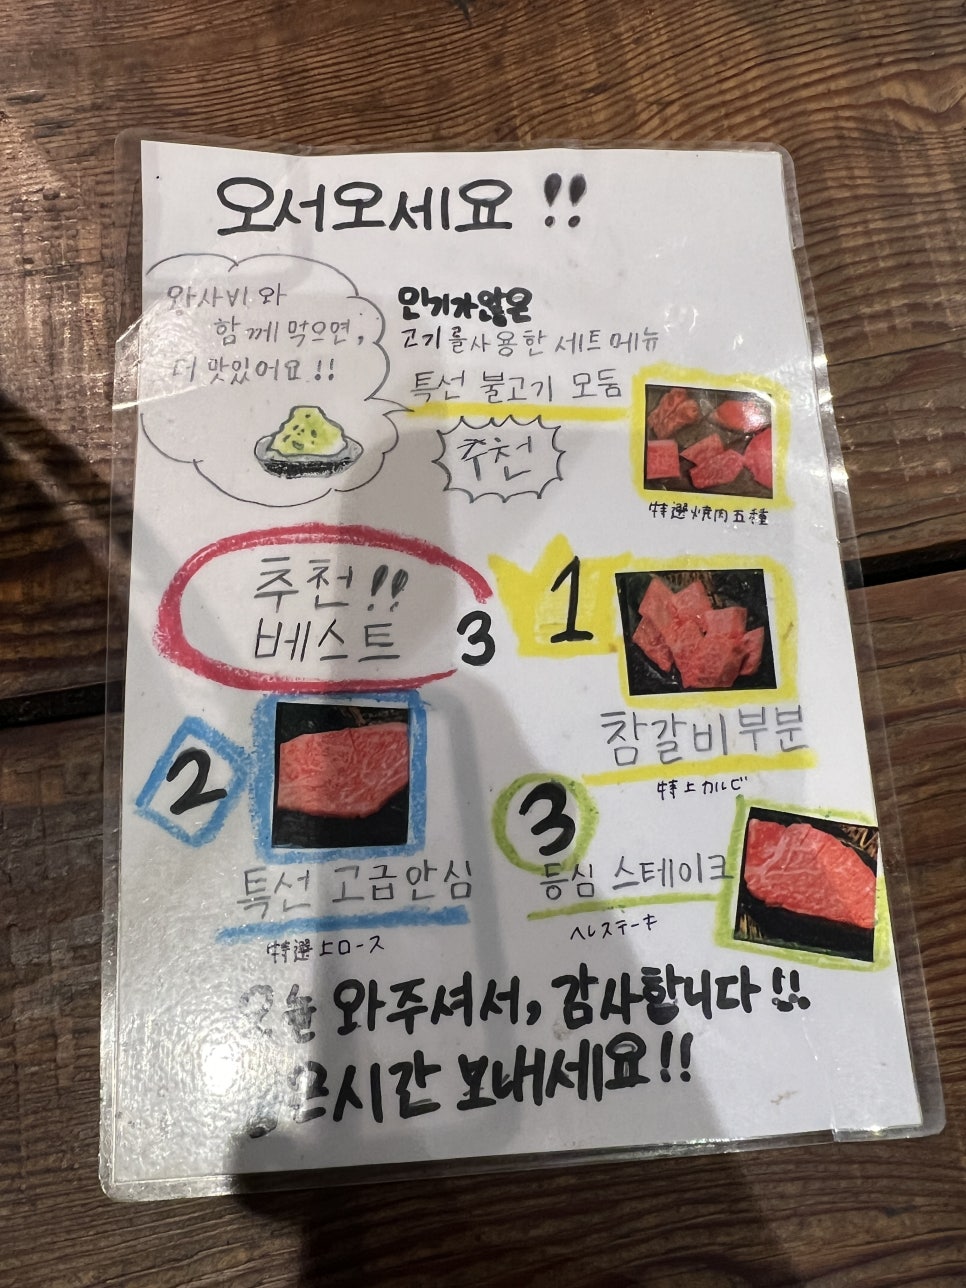 오서오세요 !!
와사비와
함께 먹으면,
더 맛있어요 !!
인기가 않은
고기를 사용한 세트 메뉴
특선 불고기 모둠
추천
特選焼肉五種
추천!!
베스트 3
1
참갈비부분
特上カルビ
2
특선 고급안심
特選上ロース
3
등심 스테이크
ヘレステーキ
오늘 와주셔서, 감사합니다 !!
은시간 보내세요!!